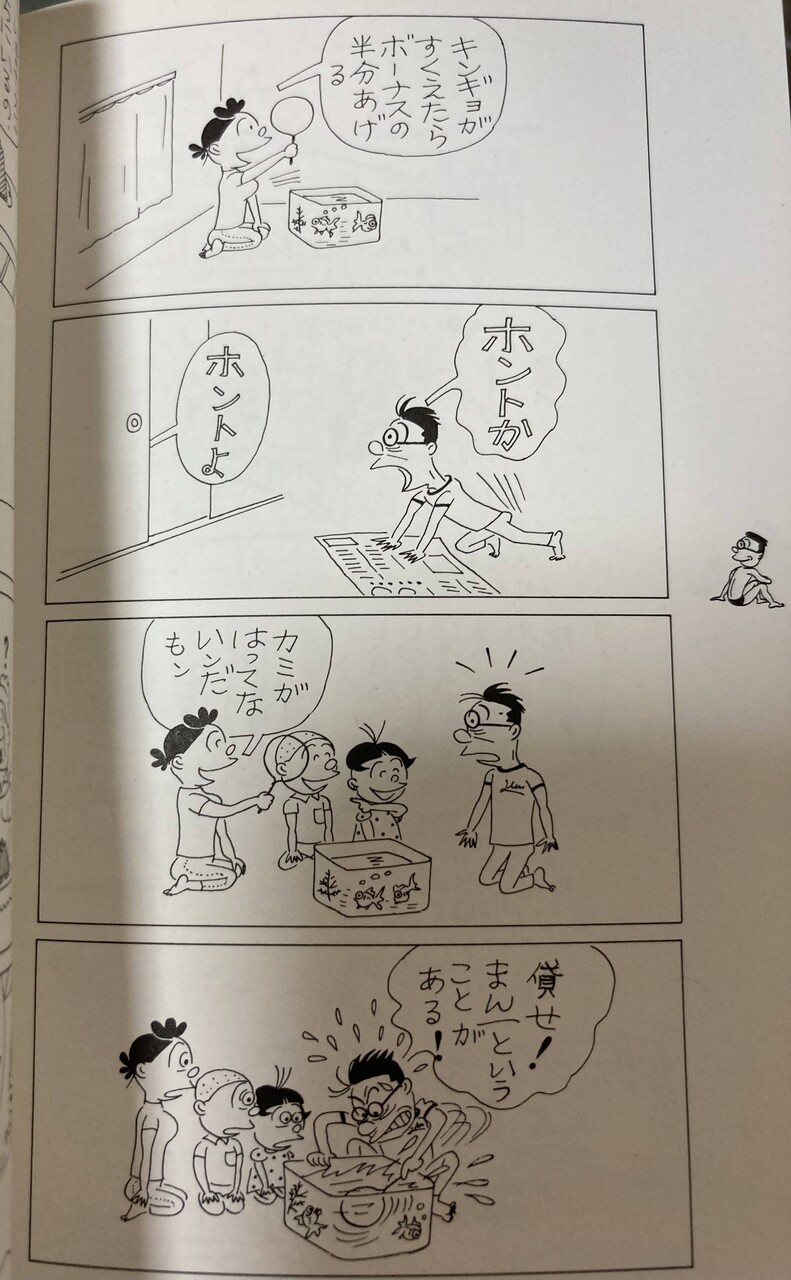 キンギョが
すくえたら
ボーナスの
半分あげ
る
ホントか
ホントよ
カミが
はってな
いンだ
もン
貸せ！
まん一という
ことが
ある！